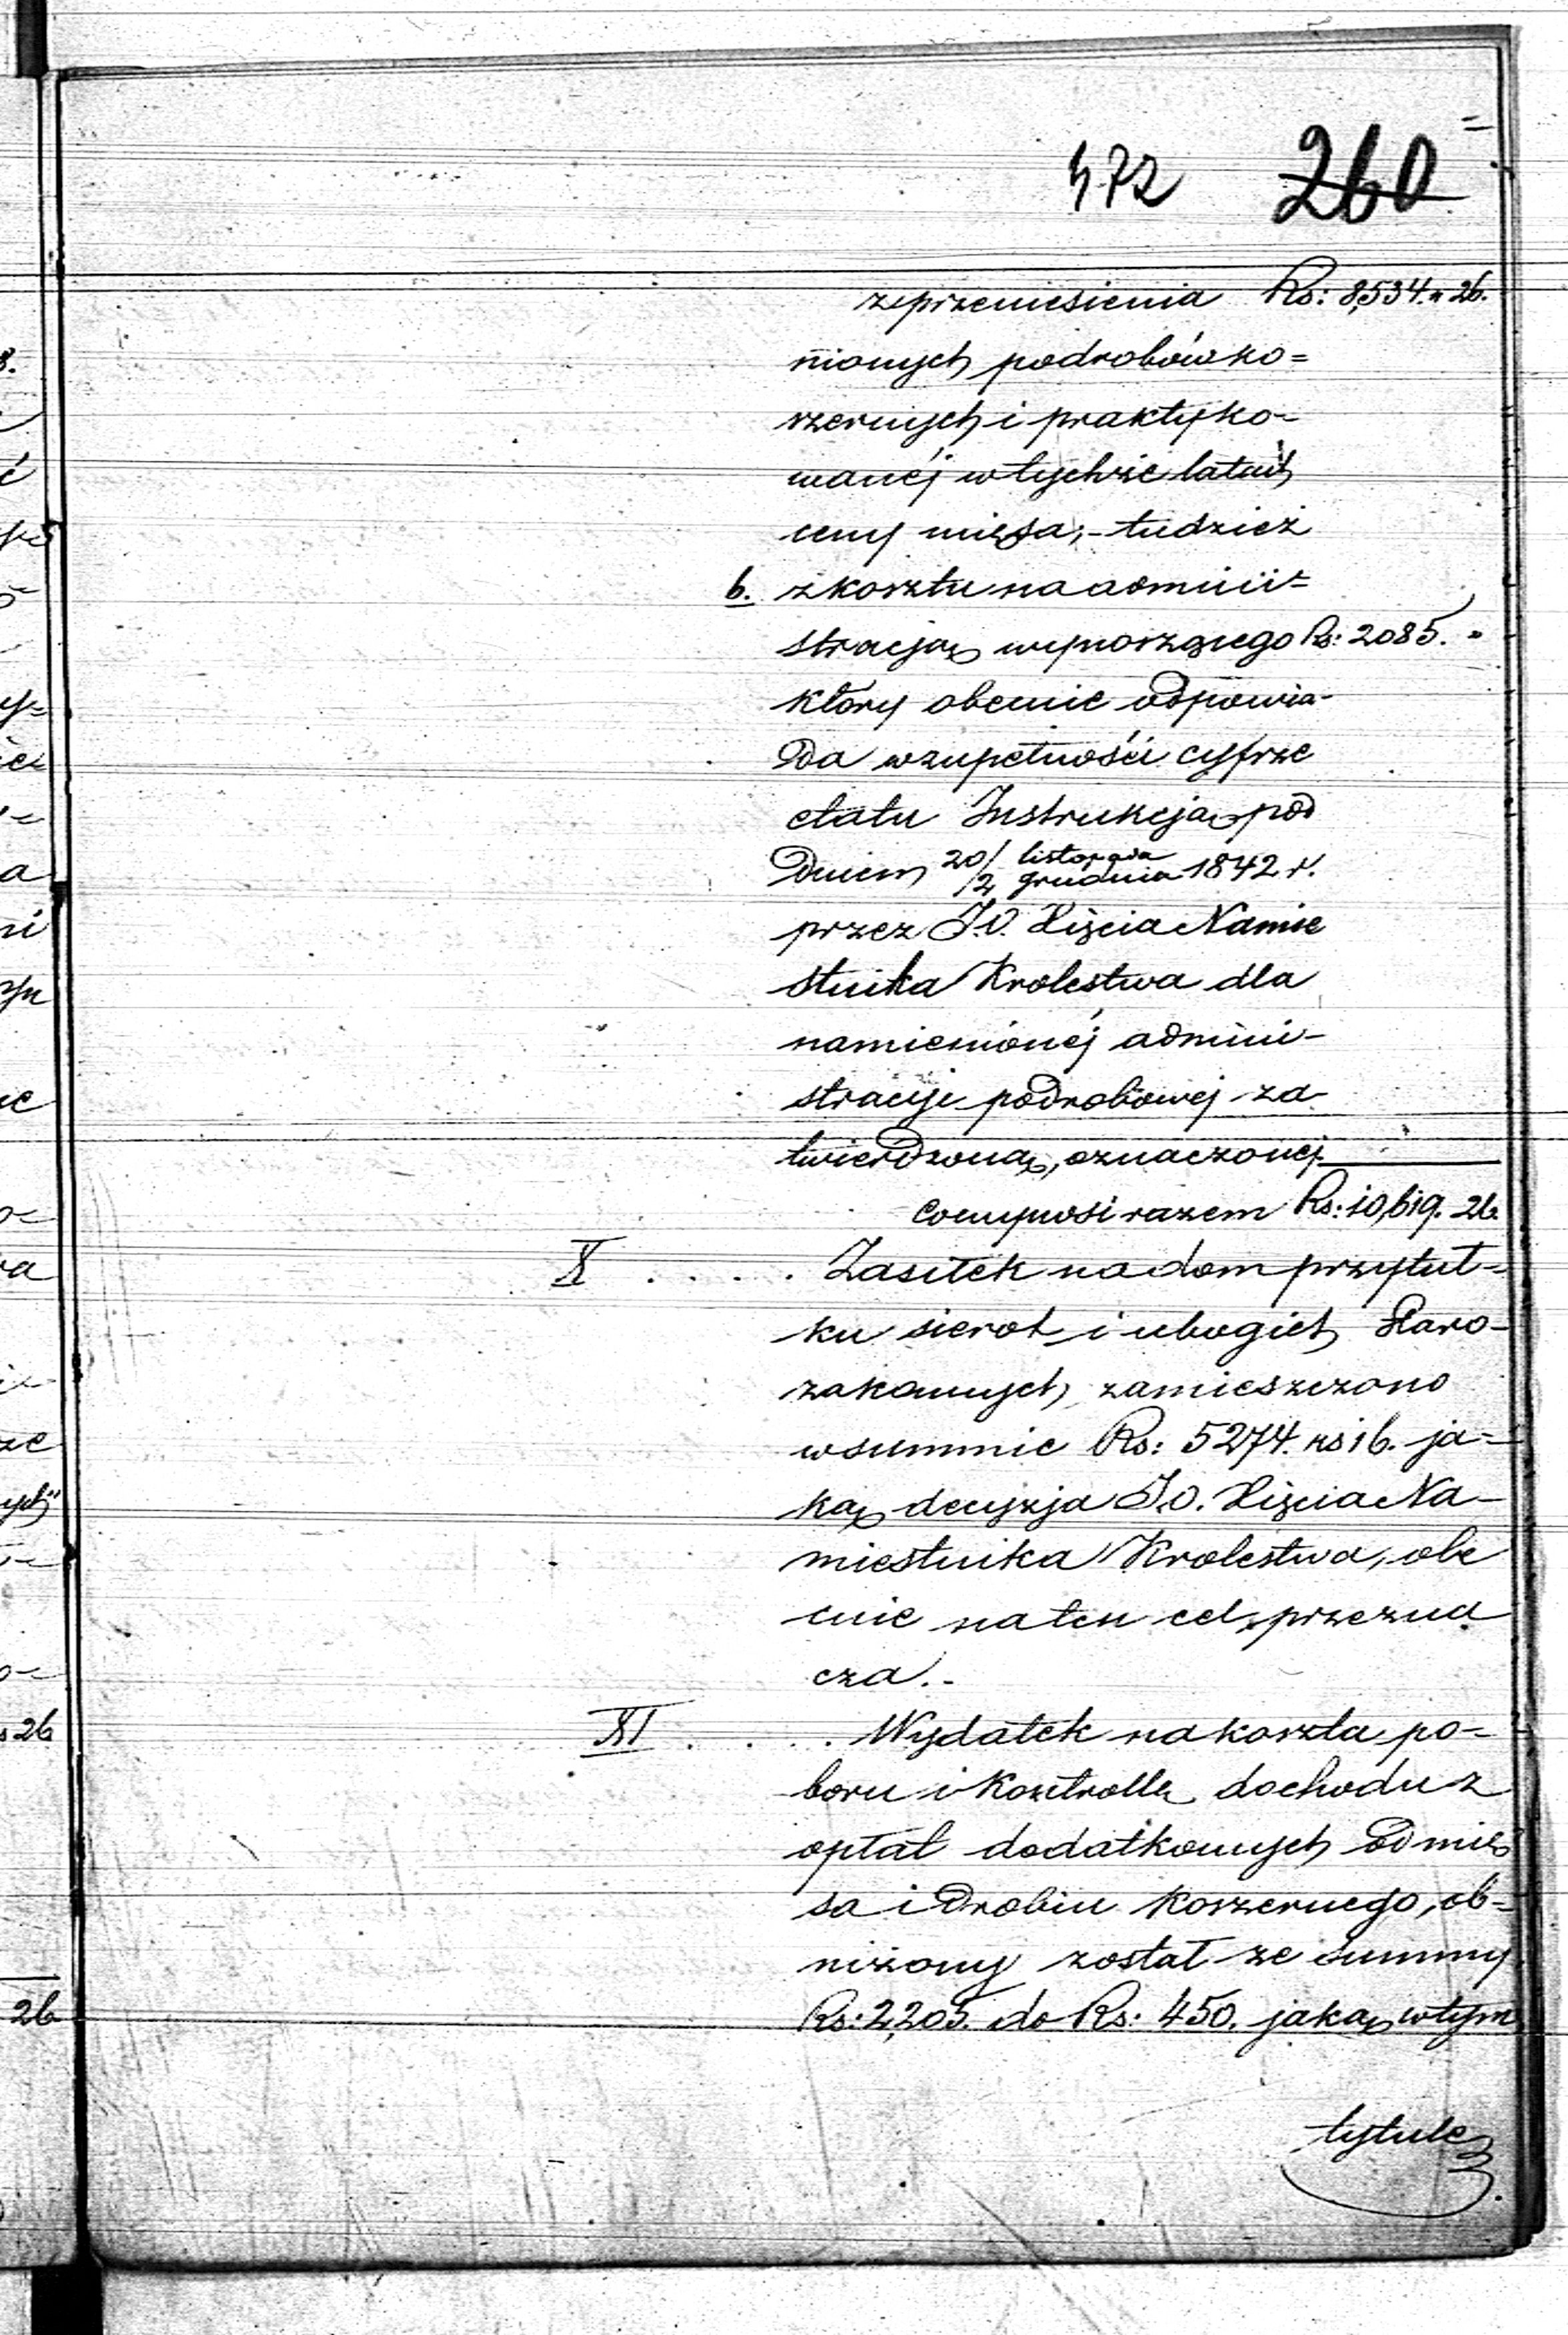 472 260
z przeniesienia Rs: 8,534. „ 26.
nionych podrobów ko=
szernych i praktyko-
wanéj w tychże latach
ceny mięsa; - tudzież
b. z kosztu na admini=
stracją wynoszącego Rs: 2085. „
który obecnie odpowia-
da w zupełności cyfrze
etatu Instrukcją pod
dniem 20/2 listopada/grudnia 1842 r.
przez J.O. Xięcia Namie
stnika Krolestwa dla
namienionéj admini-
stracyi podrobowej za-
twierdzoną, oznaczonej
co wynosi razem Rs: 10,619. 26
X . . . . Zasiłek na dom przytuł-
ku sierot i ubogich Staro-
zakonnych zamieszczono
w summie Rs: 5274. ks 16. ja-
ką decyzja J.O. Xięcia Na-
miestnika Krolestwa, obe
cnie na ten cel przezna
cza. -
XI . . . . Wydatek na koszta po-
boru i Kontrollę dochodu z
opłat dodatkowych od mię
sa i drobiu koszernego, ob-
niżony został ze summy
Rs: 2,205. do Rs: 450. jaką w tym
tytule
8.
ć
a
ni
26
26